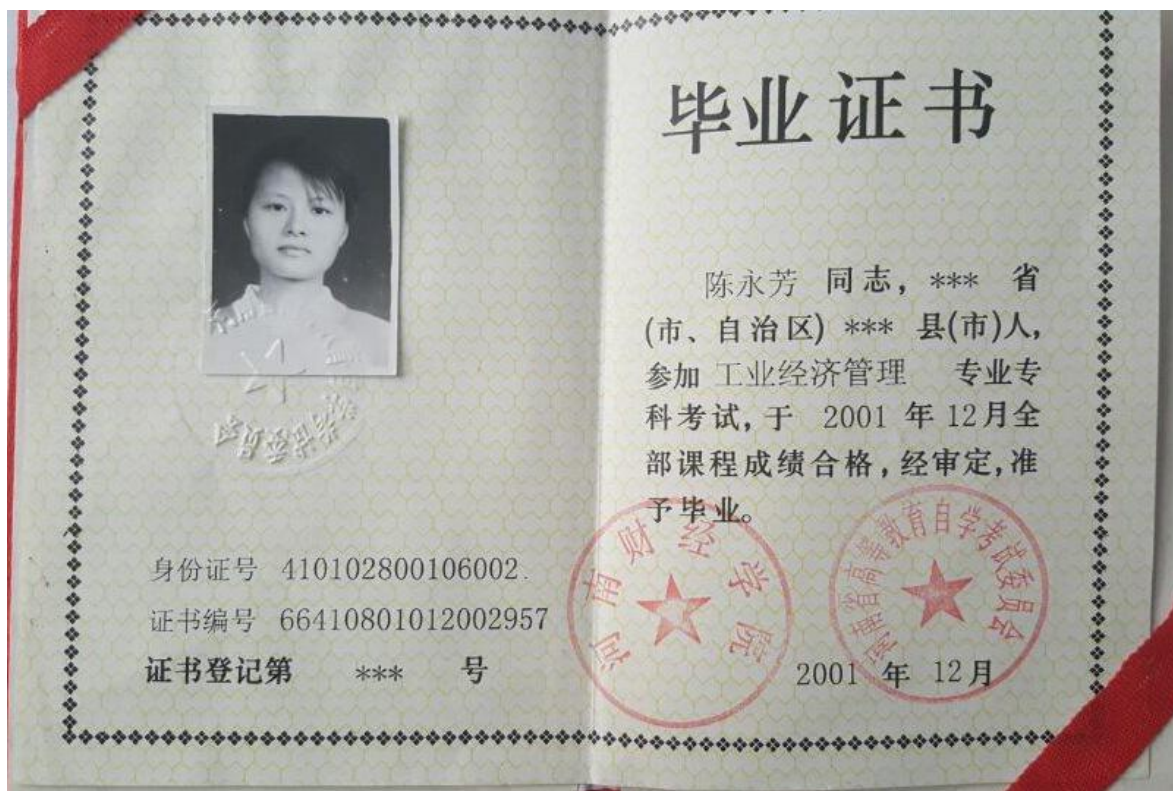 身份证号 410102800106002.
证书编号 66410801012002957
证书登记第 *** 号
毕业证书
陈永芳 同志, *** 省
(市、自治区) *** 县(市)人,
参加 工业经济管理 专业专
科考试,于 2001 年 12月全
部课程成绩合格,经审定,准
予毕业。
河南财经学院
河南省高等教育自学考试委员会
2001 年 12月